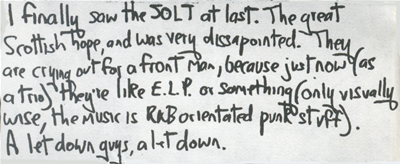 I finally saw the JOLT at last. The great
Scottish hope, and was very dissapointed. They
are crying out for a front man, because just now (as
a trio) they're like E.L.P. or something (only visually
wise, the music is R&B orientated punk stuff).
A let down guys, a let down.